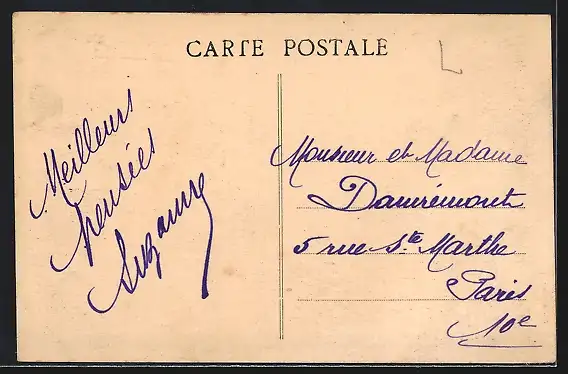 CARTE POSTALE
L
Meilleurs
pensées
Suzanne
Monsieur et Madame
Damrémont
5 rue Ste Marthe
Paris
10e